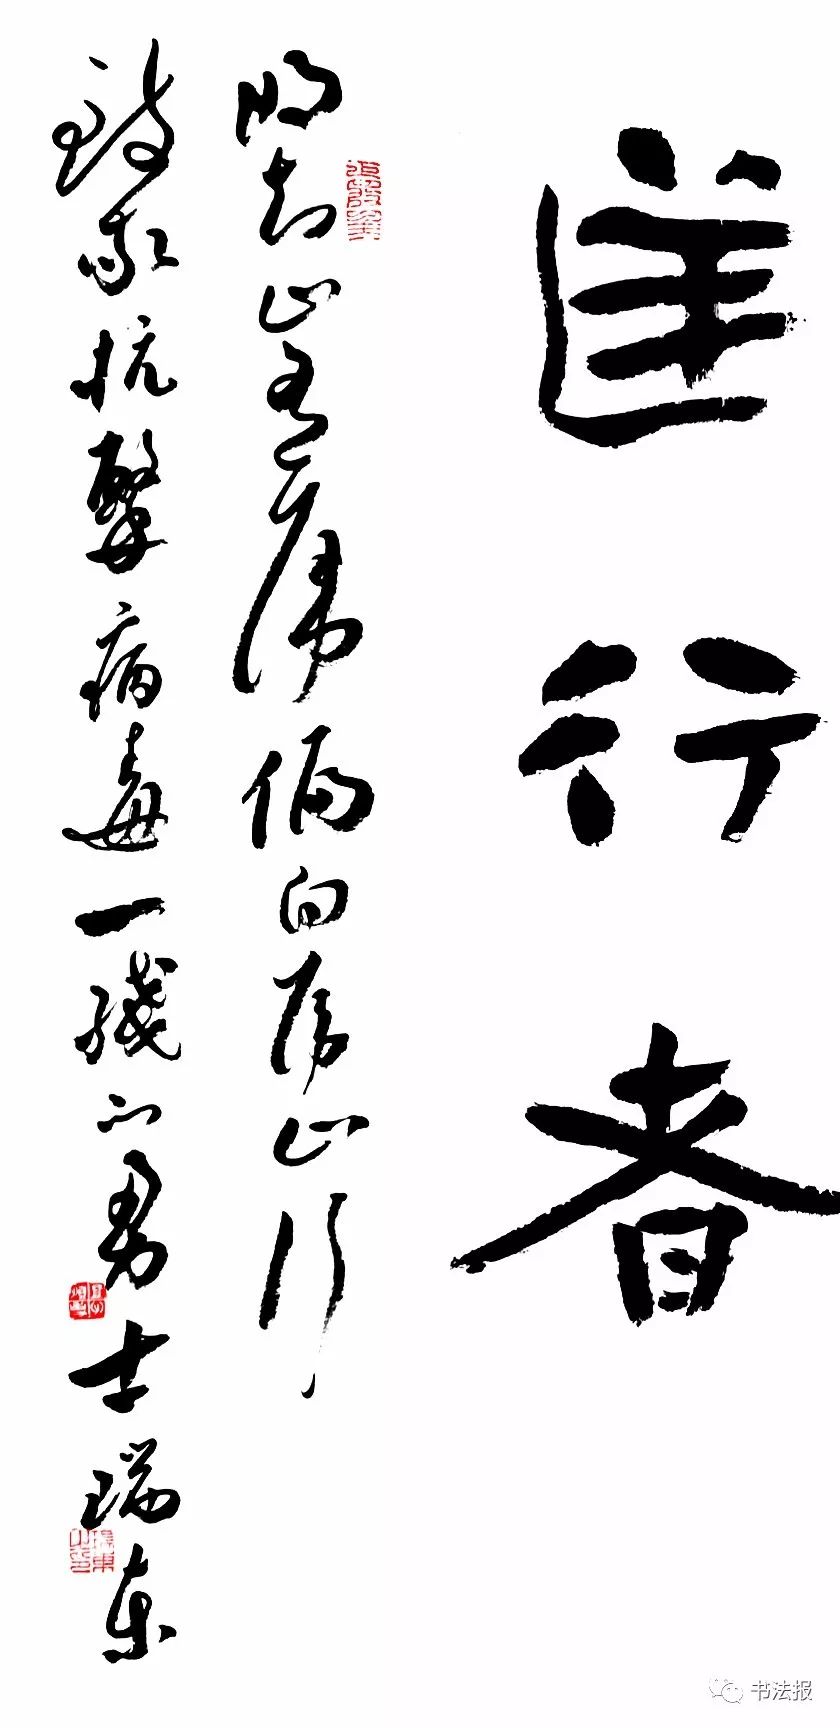 逆行者
明知山有虎偏向虎山行
致敬抗擊病毒一綫的勇士瑞东
书法报